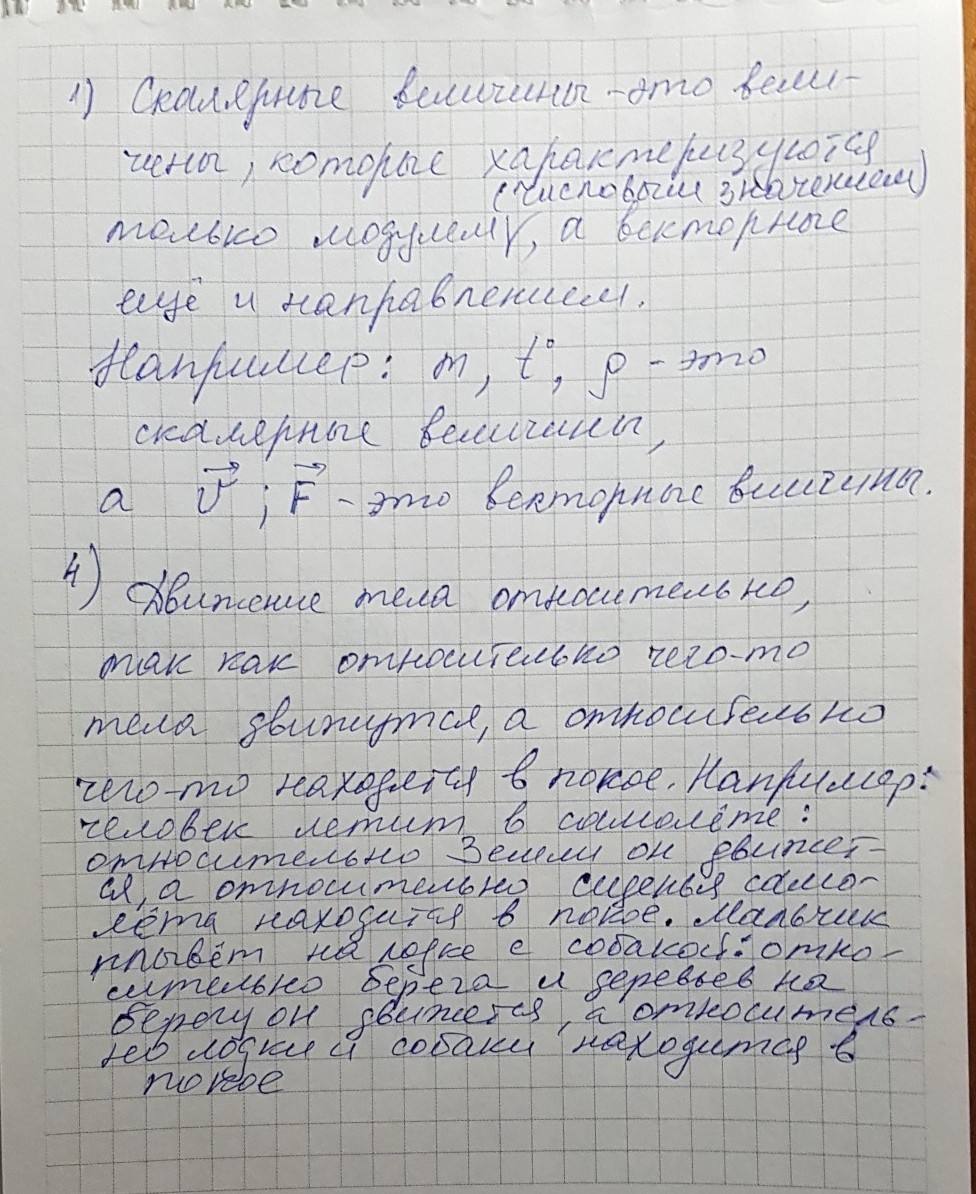 1) Скалярные величины - это вели-
чины, которые характеризуются
(числовым значением)
только модулем V, а векторные
ещё и направлением.
Например: m, t°, ρ - это
скалярные величины,
а v⃗ ; F⃗ - это векторные величины.
4) Движение тела относительно,
так как относительно чего-то
тела движутся, а относительно
чего-то находятся в покое. Например:
человек летит в самолёте:
относительно Земли он движет-
ся, а относительно сиденья само-
лёта находится в покое. Мальчик
плывёт на лодке с собакой: отно-
сительно берега и деревьев на
берегу он движется, а относитель-
но лодки и собаки находится в
покое